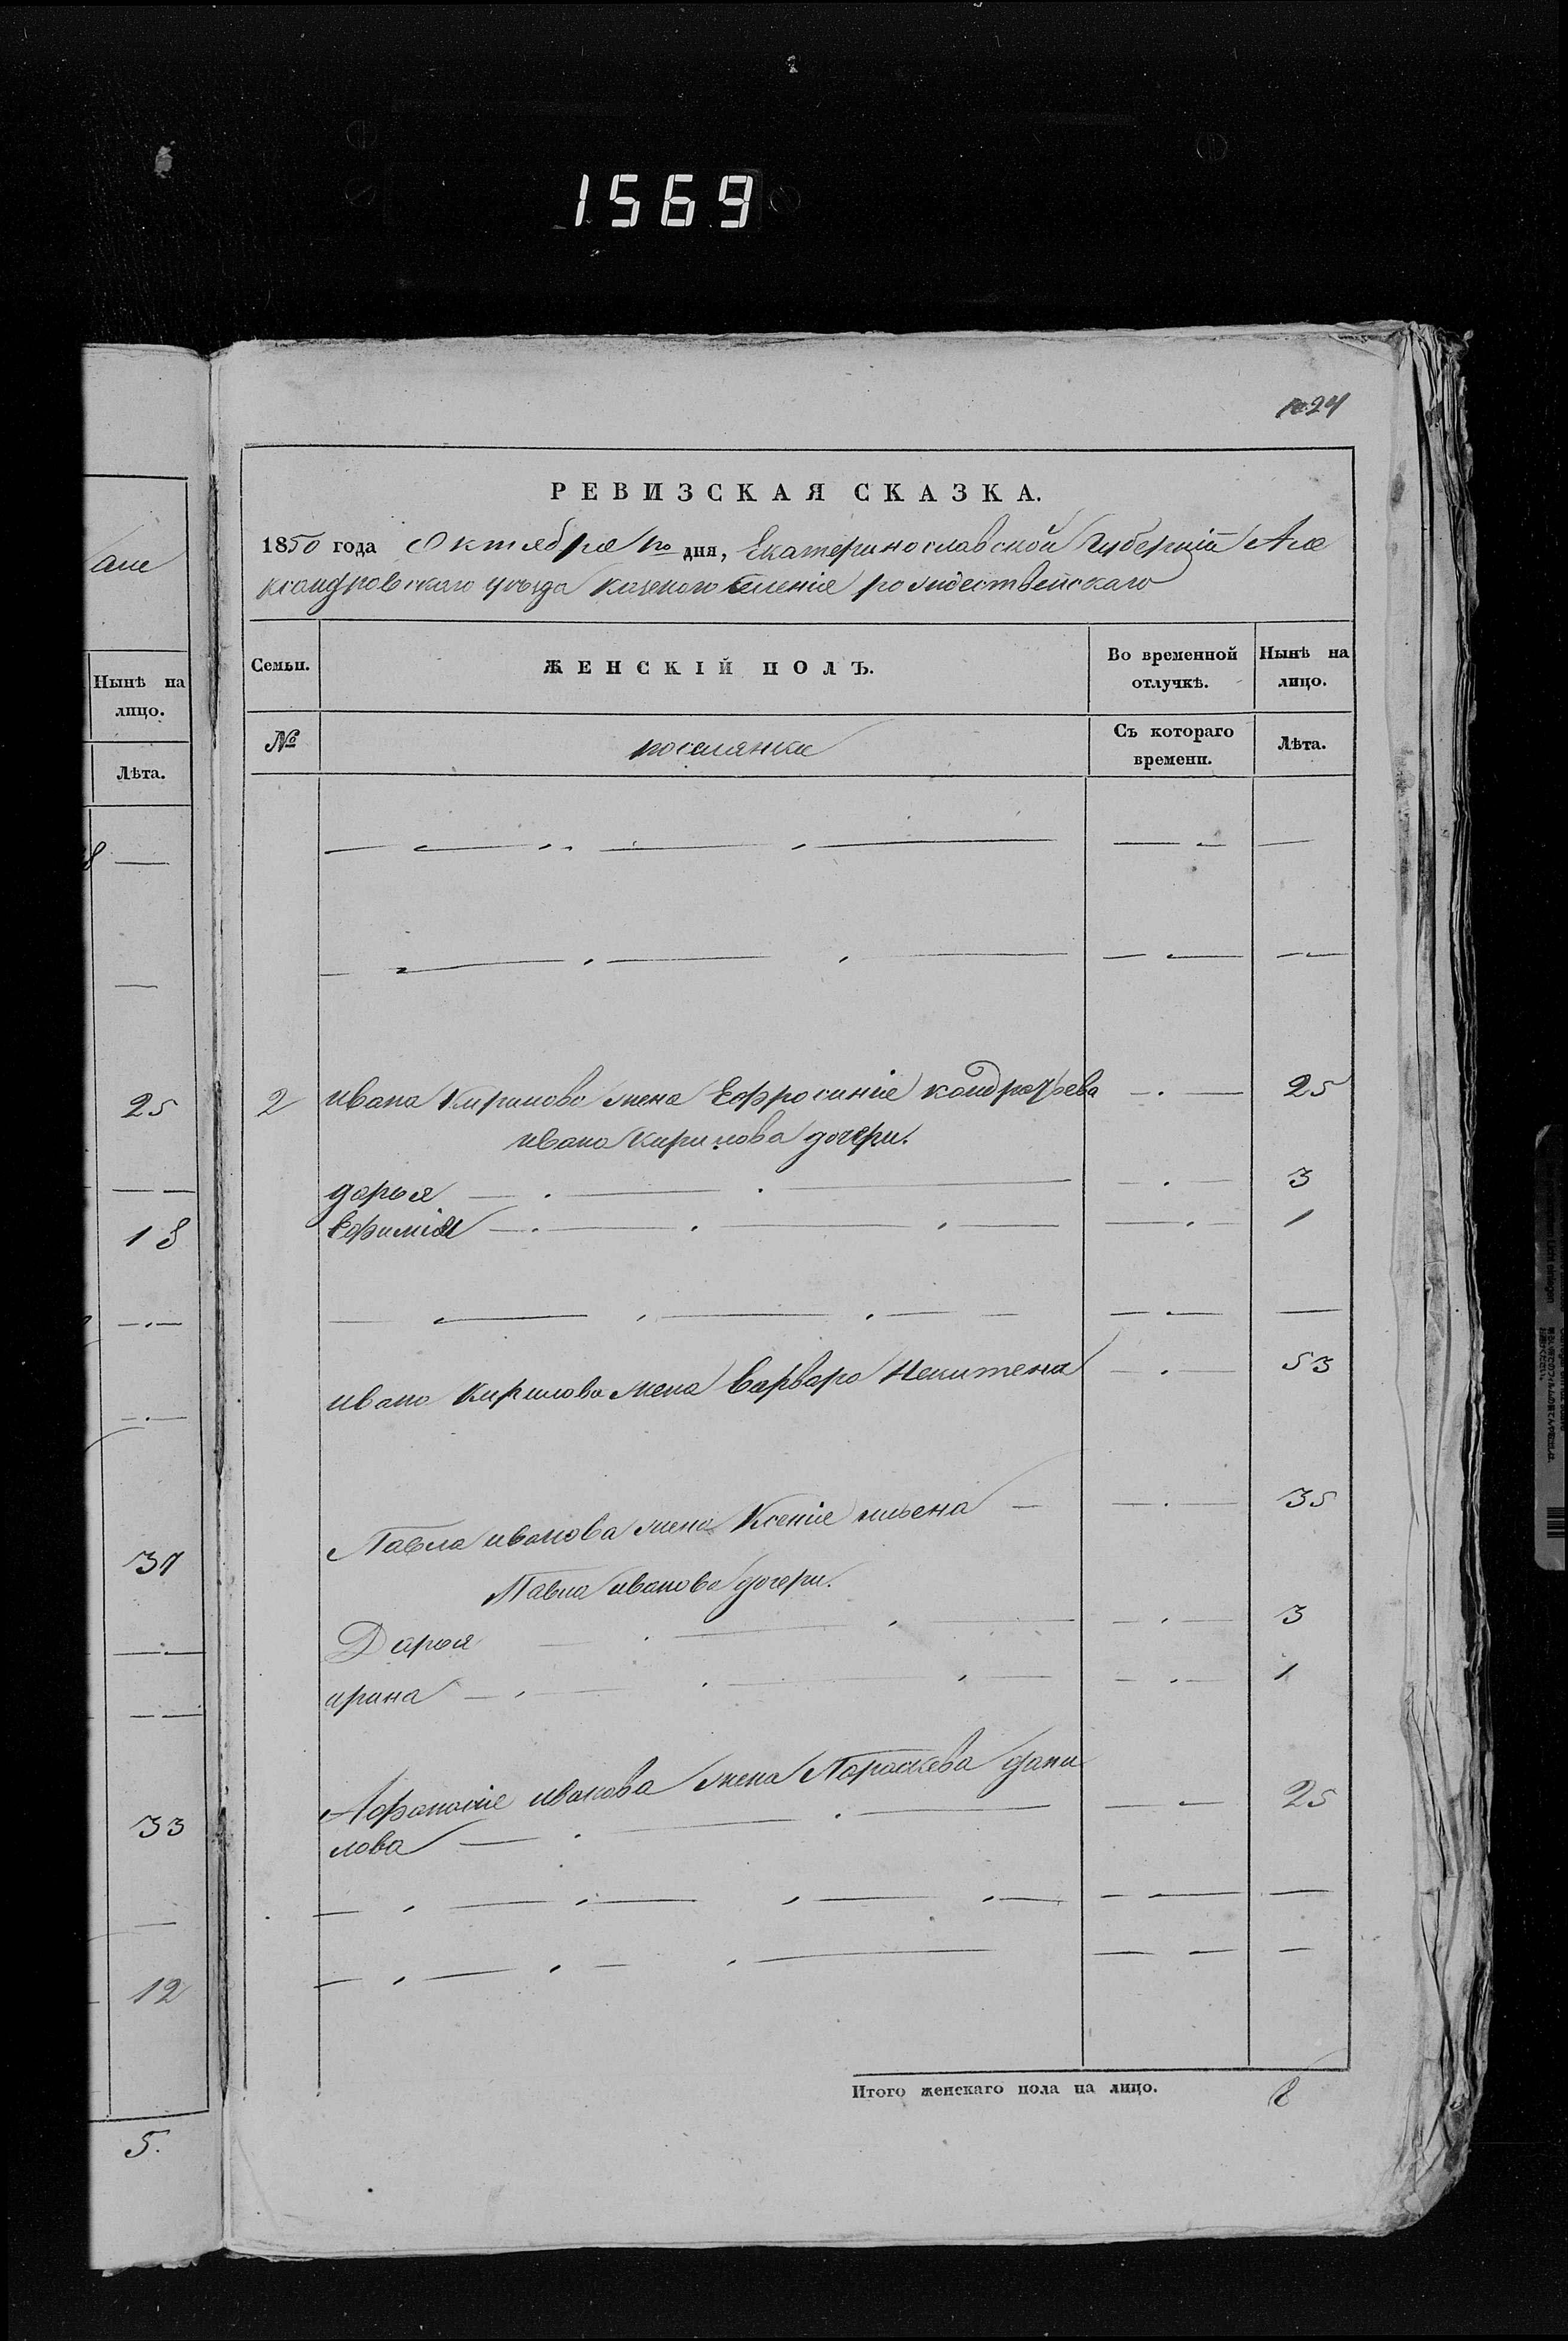 1569
24
РЕВИЗСКАЯ СКАЗКА.
1850 года Октября дня, Екатеринославской Губерніи Але
ксандровскаго уѣзда казеного селенія рождественскаго
аго
Нынѣ на
лицо.
Лѣта.
25
18
37
33
12
5.
Семьи. ЖЕНСКІЙ ПОЛЪ. Во временной отлучкѣ. Нынѣ на лицо.
№ поселянки Съ котораго времени. Лѣта.
2 ивана Кирилова жена Ефросиніе кондратьева 25
ивана Кирилова дочери.
дарья 3
Ефиміи 1
ивана Кирилова жена варвара Никитена 53
Павла иванова жена Ксеніе ильена 35
Павла иванова дочери.
Дарья 3
ирина 1
Афанасіе иванова жена Параскева дани 25
лова
Итого женскаго пола на лицо. 8